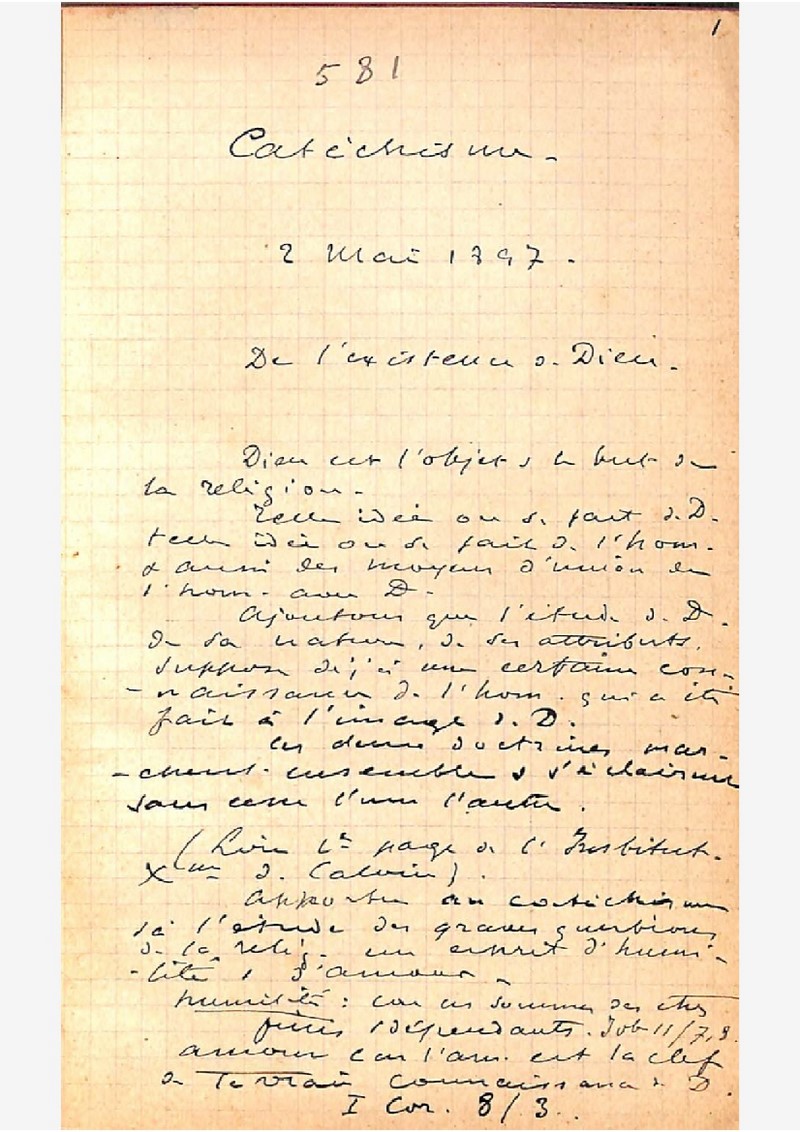 1
581
Catéchisme -
2 Mai 1897.
De l'existence d. Dieu.
Dieu est l'objet & le but de
la religion.
Telle idée on se fait d. D.
telle idée on se fait de l'hom.
& aussi des moyens d'union de
l'hom. avec D.
Ajoutons que l'étude d. D.
de sa nature, de ses attributs,
suppose déjà une certaine con-
-naissance de l'hom. qui a été
fait à l'image d. D.
Ces deux doctrines mar-
-chent ensemble & s'éclairent
sans cesse l'une l'autre.
(Lire 1re page de l'Institut.
Xnne d. Calvin).
Apporter au catéchisme
& à l'étude des graves questions
de la relig. un esprit d'humi-
-lité & d'amour.
humilité: car ns sommes des êtres
finis & dépendants. Job 11/7,9.
amour car l'am. est la clef
de la vraie connaissance d. D.
I Cor. 8/3.